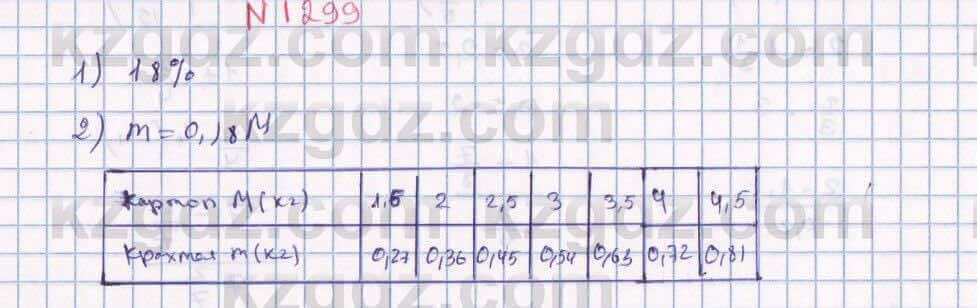 N 1299
1) 18%
2) m = 0,18 M
Картоп M (кг) 1,5 2 2,5 3 3,5 4 4,5
Крахмал m (кг) 0,27 0,36 0,45 0,54 0,63 0,72 0,81
kzgdz.com kzgdz.com
kzgdz.com
kzgdz.com kzgdz.com
kzgdz.com